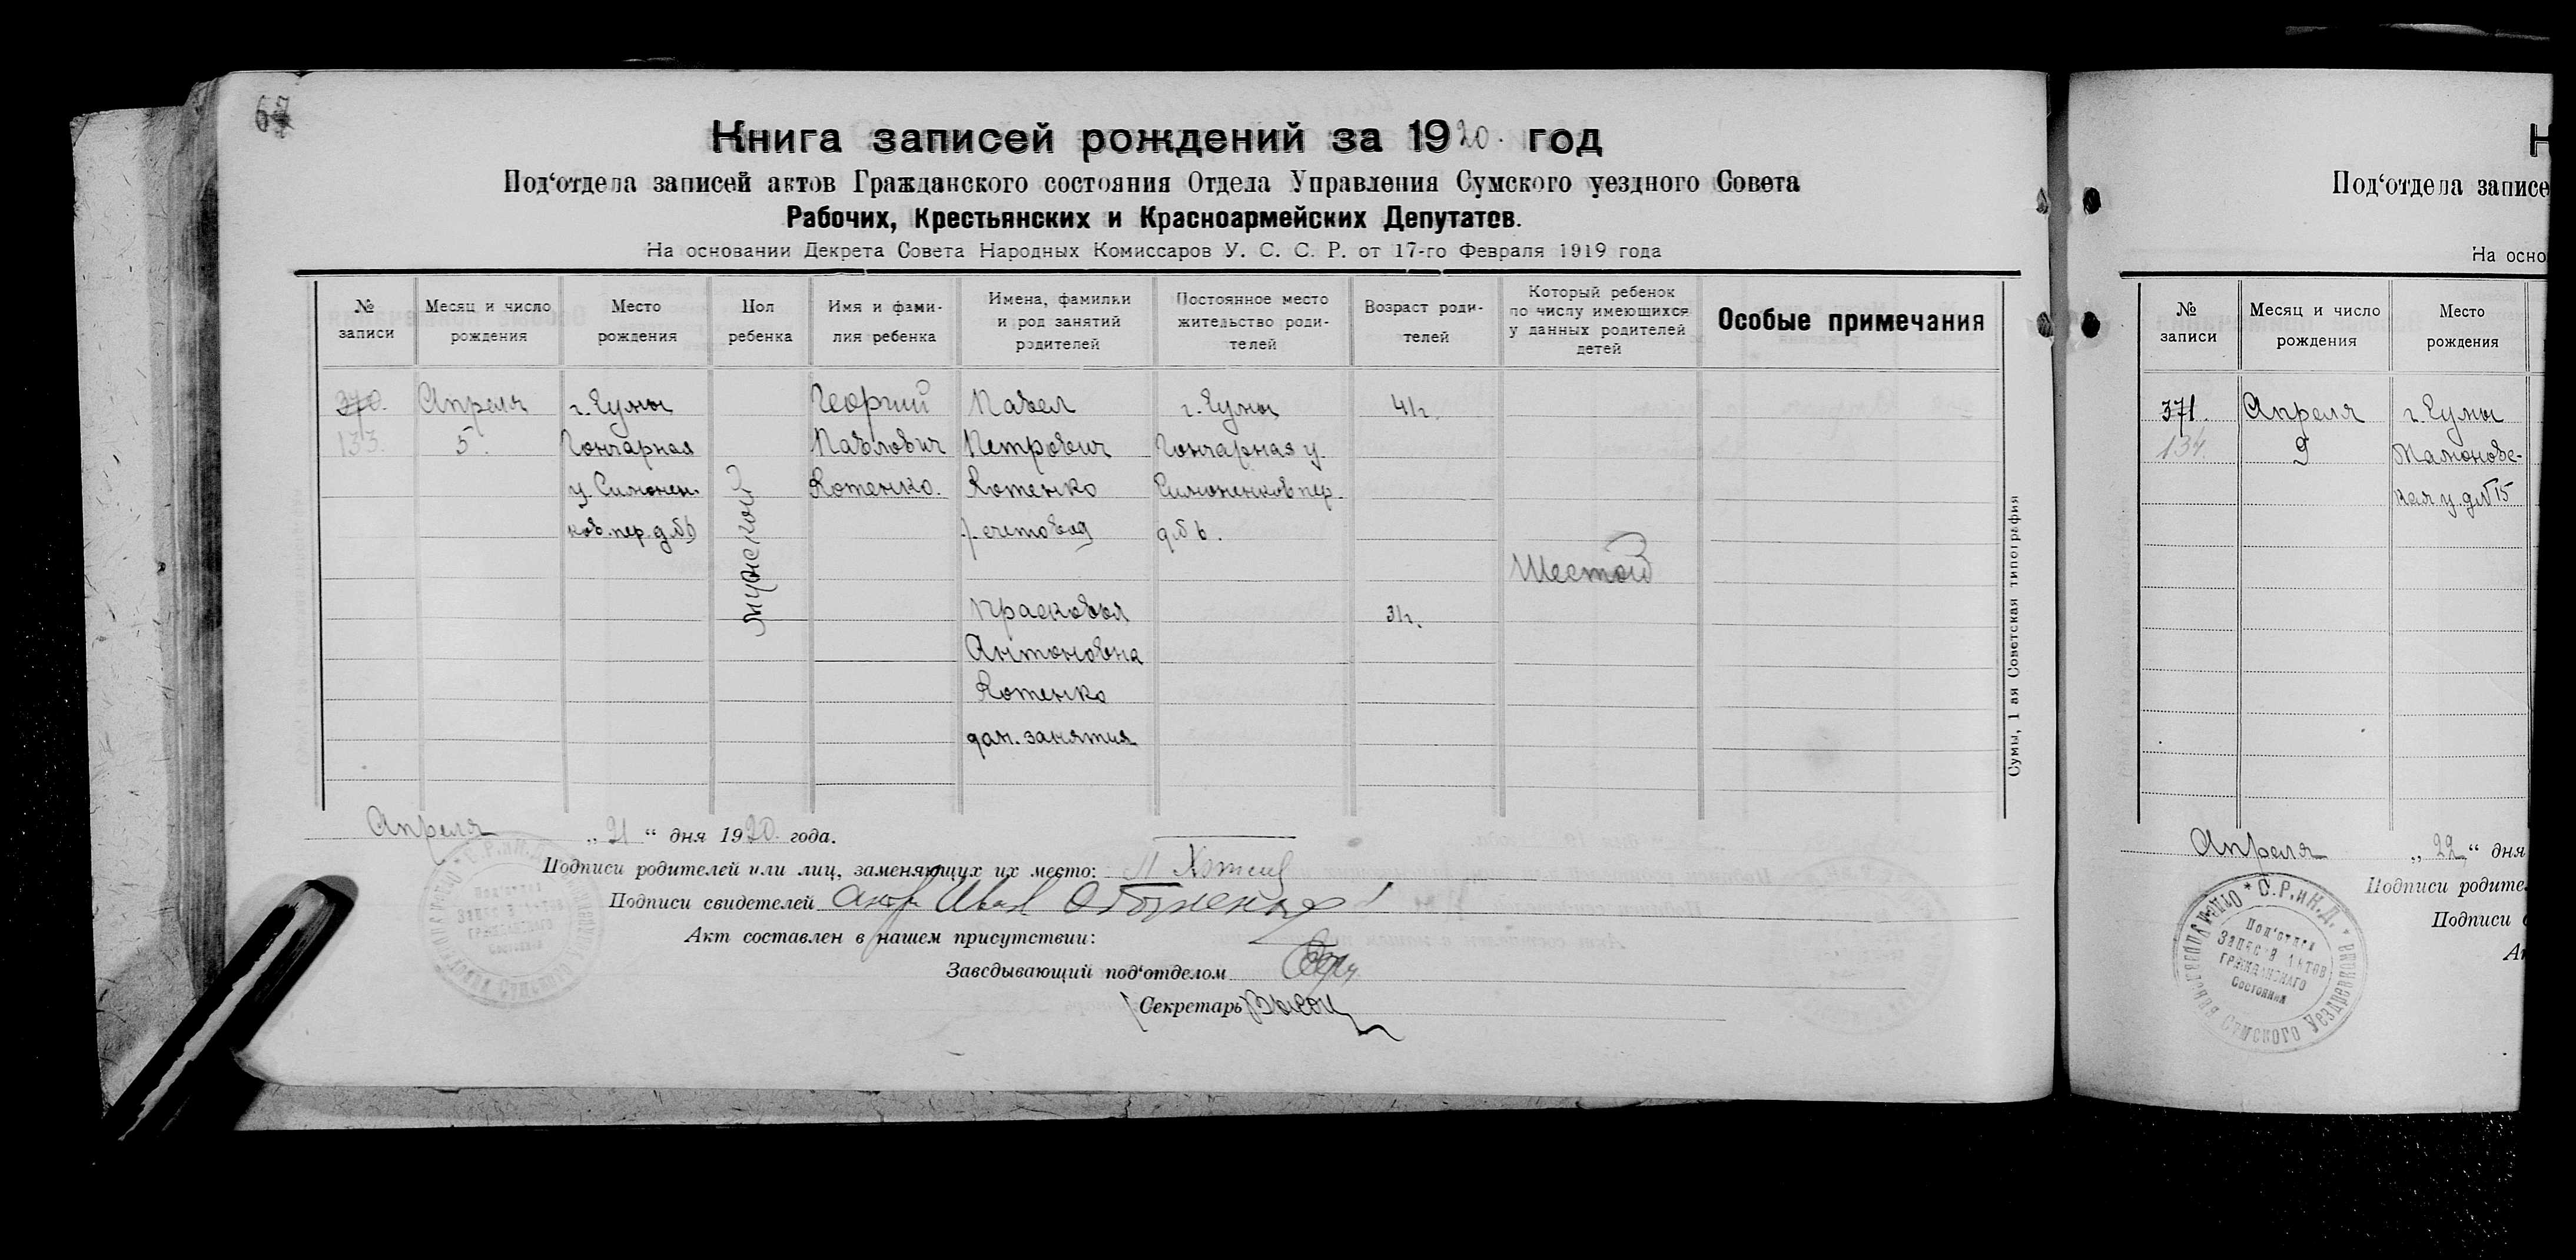 67
Книга записей рождений за 1920. год
Под‘отдела записей актов Гражданского состояния Отдела Управления Сумского уездного Совета
Рабочих, Крестьянских и Красноармейских Депутатов.
На основании Декрета Совета Народных Комиссаров У. С. С. Р. от 17-го Февраля 1919 года
№ записи
Месяц и число рождения
Место рождения
Пол ребенка
Имя и фами-
лия ребенка
Имена, фамилии
и род занятий
родителей
Постоянное место
жительство роди-
телей
Возраст роди-
телей
Который ребенок
по числу имеющихся
у данных родителей
детей
Особые примечания
370.
133.
Апреля
5.
г. Сумы
Гончарная
у. Симонен-
ков. пер. д. № 6
мужской
Георгий
Павлович
Котенко.
Павел
Петрович
Котенко
счетовод
Прасковья
Антоновна
Котенко
дом. занятия
г. Сумы
Гончарная у.
Симоненков пер.
д. № 6.
41 г.
31 г.
Шестой
Сумы, 1 ая Советская типография
Апреля „21“ дня 1920 года.
Подписи родителей или лиц, заменяющих их место: П
Подписи свидетелей Иван
Акт составлен в нашем присутствии:
Заведывающий под‘отделом
Секретарь
С. Р. и К. Д.
Под‘отдел
Записей Актов
Гражданского
Состояния
Н
Под‘отдела записе
На осно
№ записи
Месяц и число рождения
Место рождения
371.
134.
Апреля
9
г. Сумы
кая у. д. № 15
Апреля „22“ дня
Подписи родите
Подписи
С. Р. и К. Д.
Под‘отдел
Записей Актов
Гражданского
Состояния
Сумского Уездревкома